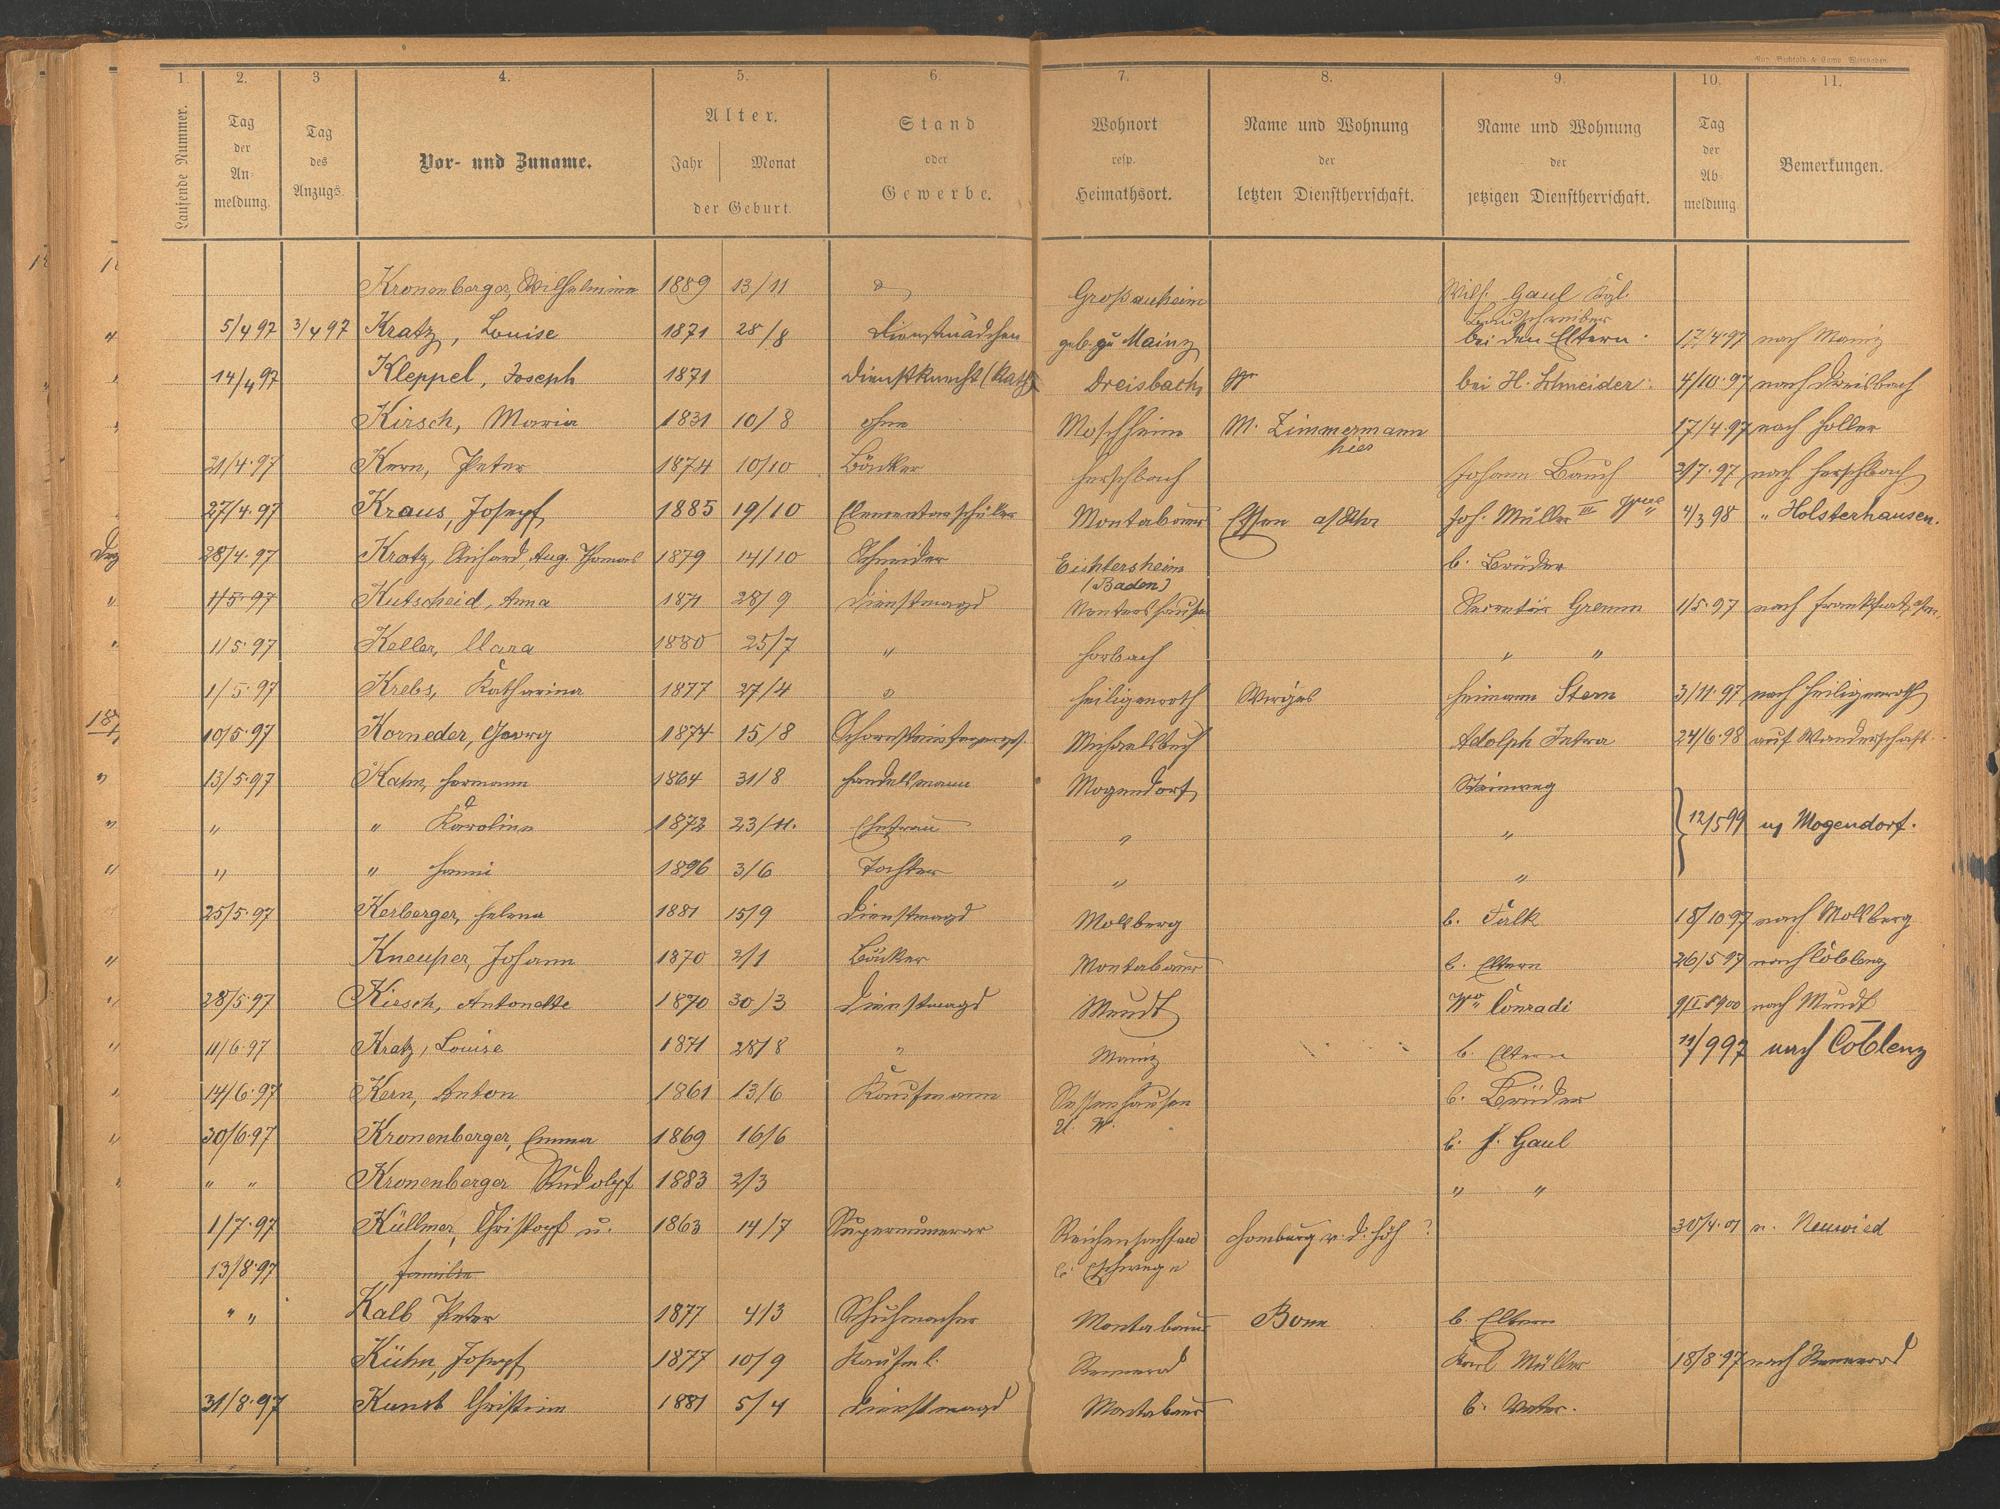 1. 2. 3 4. 5. 6. 7. 8. 9. 10. 11.
Laufende Nummer.
Tag der Anmeldung.
Tag des Anzugs.
Vor- und Zuname.
Alter.
Jahr Monat
der Geburt.
Stand oder Gewerbe.
Wohnort resp. Heimathsort.
Name und Wohnung der letzten Dienstherrschaft.
Name und Wohnung der jetzigen Dienstherrschaft.
Tag der Abmeldung
Bemerkungen.
Kronenberger, Wilhelmine 1889 13/11 Großauheim Wilh. Gaul Kgl.
Bauschreiber
5/4 97 3/4 97 Kratz, Louise 1871 28/8 Dienstmädchen geb. zu Mainz bei den Eltern. 17/4 97 nach Mainz
14/4 97 Kleppel, Joseph 1871 Dienstknecht (kath) Dreisbach, Wr bei H. Schneider 4/10 97 nach Dreisbach
Kirsch, Maria 1831 10/8 ohne Moschheim M. Zimmermann 17/4.97 nach Holler
hier
21/4.97 Kern, Peter 1874 10/10 Bäcker Herschbach Johann Bauch 3/7.97 nach Herschbach
27/4.97 Kraus, Joseph 1885 19/10 Elementarschüler Montabaur Essen a/Ruhr Joh. Müller III 4/3 98 " Holsterhausen.
28/4.97 Kratz, Richard, Aug. Thomas 1879 14/10 Schneider Eichtersheim b. Bruder
(Baden)
1/5.97 Kutscheid, Anna 1871 28/9 Dienstmagd Secretär Gremm 1/5.97 nach Frankfurt a/m.
1/5.97 Keller, Clara 1880 25/7 " Horbach " "
1/5.97 Krebs, Katharina 1877 27/4 " Heiligenroth Wirges Heimann Stern 3/11.97 nach Heiligenroth
10/5.97 Korneder, Georg 1874 15/8 Michaelsbuch Adolph 24/6.98 auf Wanderschaft.
13/5.97 Kahn, Hermann 1864 31/8 Handelsmann Mogendorf Steinweg
" " Karoline 1872 23/11. Ehefrau " " 12/5 99 n. Mogendorf.
" " Hanni 1896 3/6 Tochter " "
25/5.97 Kerberger, Helena 1881 15/9 Dienstmagd Molsberg b. Falk 18/10.97 nach Molsberg
Kneuper, Johann 1870 2/1 Bäcker Montabaur b. Eltern 26/5 97 nach Coblenz
28/5.97 Kirsch, Antonette 1870 30/3 Dienstmagd Meudt Ww Conradi nach Meudt
11/6.97 Kratz, Louise 1871 28/8 " Mainz b. Eltern 11/9 97 nach Coblenz
14/6.97 Kern, Anton 1861 13/6 Kaufmann Sessenhausen b. Bruder
U. W.
30/6.97 Kronenberger, Emma 1869 16/6 b. J. Gaul
" " Kronenberger Rudolph 1883 2/3 " "
1/7.97 Küllmer, Christoph u. 1863 14/7 Supernumerar Reichensachsen Homburg v. d. Höh ? 30/4.01 n. Neuwied
13/8.97 Familie b. Eschwege
" " Kalb Peter 1877 4/3 Schuhmacher Montabaur Bonn b. Eltern
Kühn, Joseph 1877 10/9 Kaufml. Rennerod Karl Müller 18/8.97 nach Rennerod
31/8.97 Kunst Christine 1881 5/4 Dienstmagd Montabaur b. Vater.